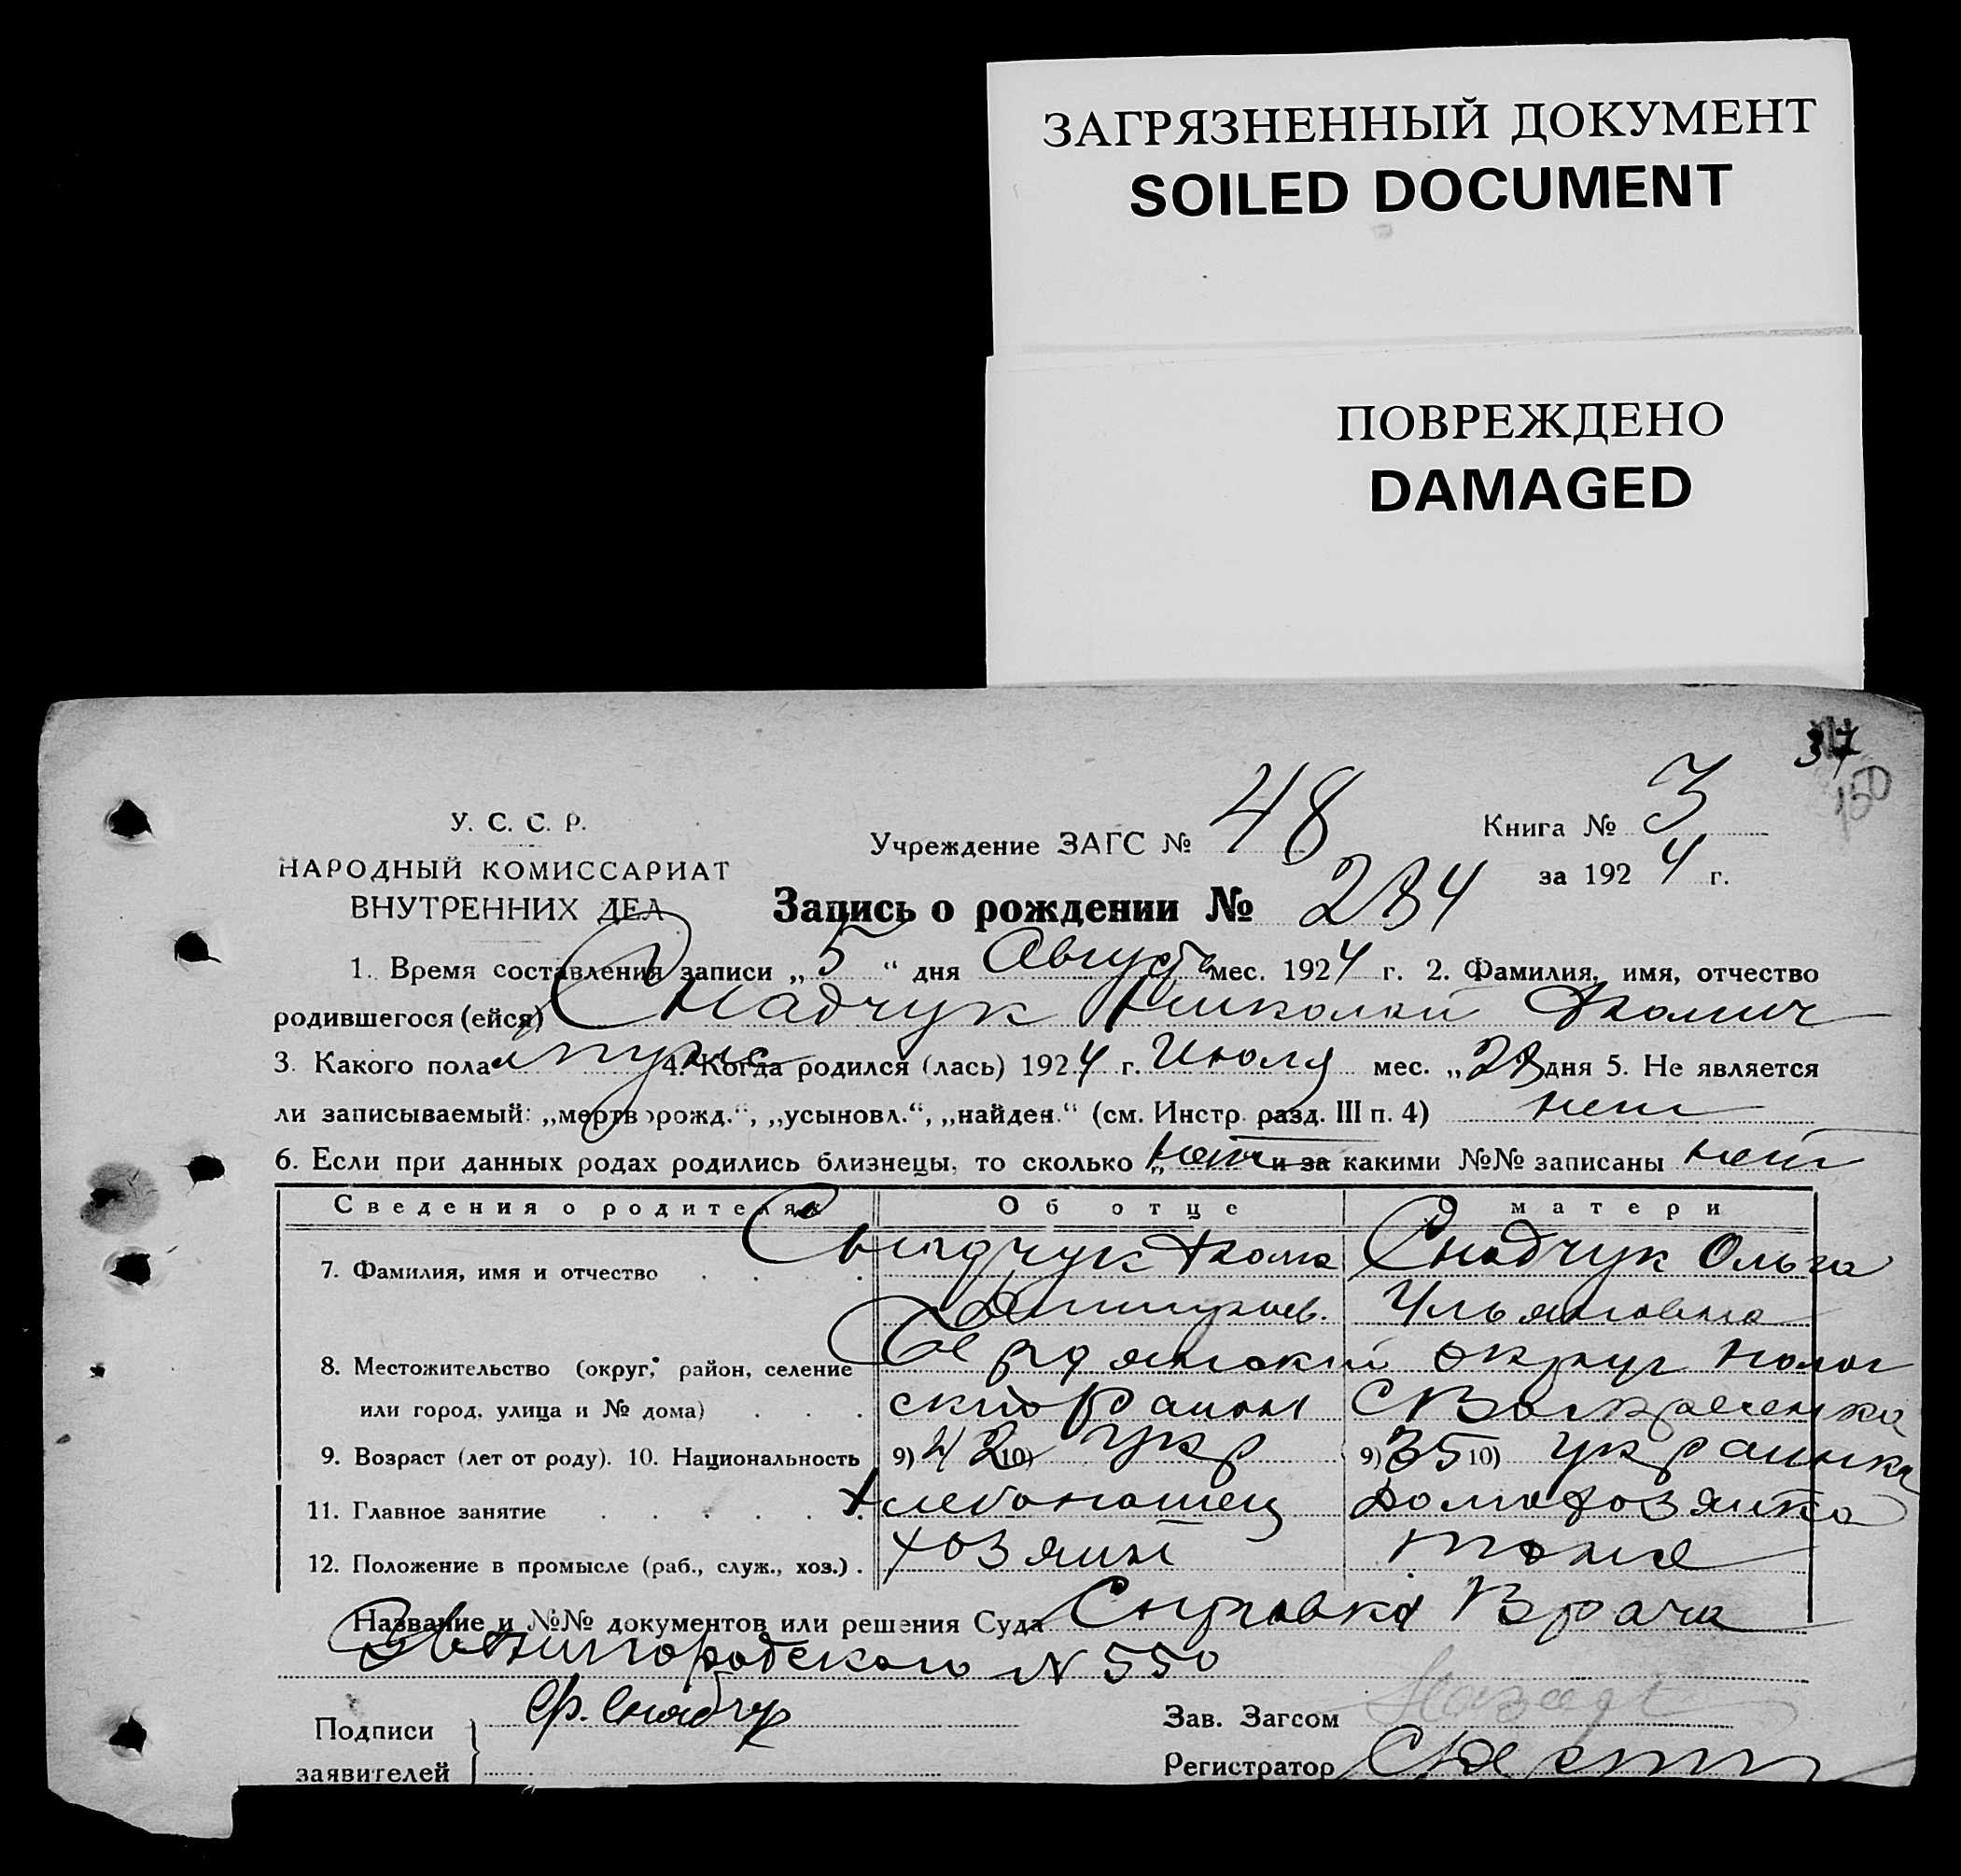 ЗАГРЯЗНЕННЫЙ ДОКУМЕНТ
SOILED DOCUMENT
ПОВРЕЖДЕНО
DAMAGED
37
150
У. С. С. Р.
НАРОДНЫЙ КОМИССАРИАТ
ВНУТРЕННИХ ДЕЛ
Учреждение ЗАГС № 48
Книга № 3
за 1924 г.
Запись о рождении № 234
1. Время составления записи „5“ дня Августа мес. 1924 г. 2. Фамилия, имя, отчество
родившегося (ейся) Снадчук Николай Фомич
3. Какого пола муж 4. Когда родился (лась) 1924 г. Июля мес. „23 дня 5. Не является
ли записываемый: „мертворожд.“, „усыновл.“, „найден.“ (см. Инстр. разд. III п. 4) нет
6. Если при данных родах родились близнецы, то сколько „нет и за какими №№ записаны нет
Сведения о родителях Об отце О матери
7. Фамилия, имя и отчество Снадчук Фома Снадчук Ольга
Ульяновна
8. Местожительство (округ, район, селение Бердянский округ Полог
или город, улица и № дома) ский район С Воскресенка
9. Возраст (лет от роду). 10. Национальность 9) 42 10) Укр 9) 35 10) Украинка
11. Главное занятие Хлебопашец Домохозяйка
12. Положение в промысле (раб., служ., хоз.) хозяин тоже
Название и №№ документов или решения Суда Справка Врача
Звенигородского N 550
Подписи
заявителей
Ф. Снадчук
Зав. Загсом
Регистратор